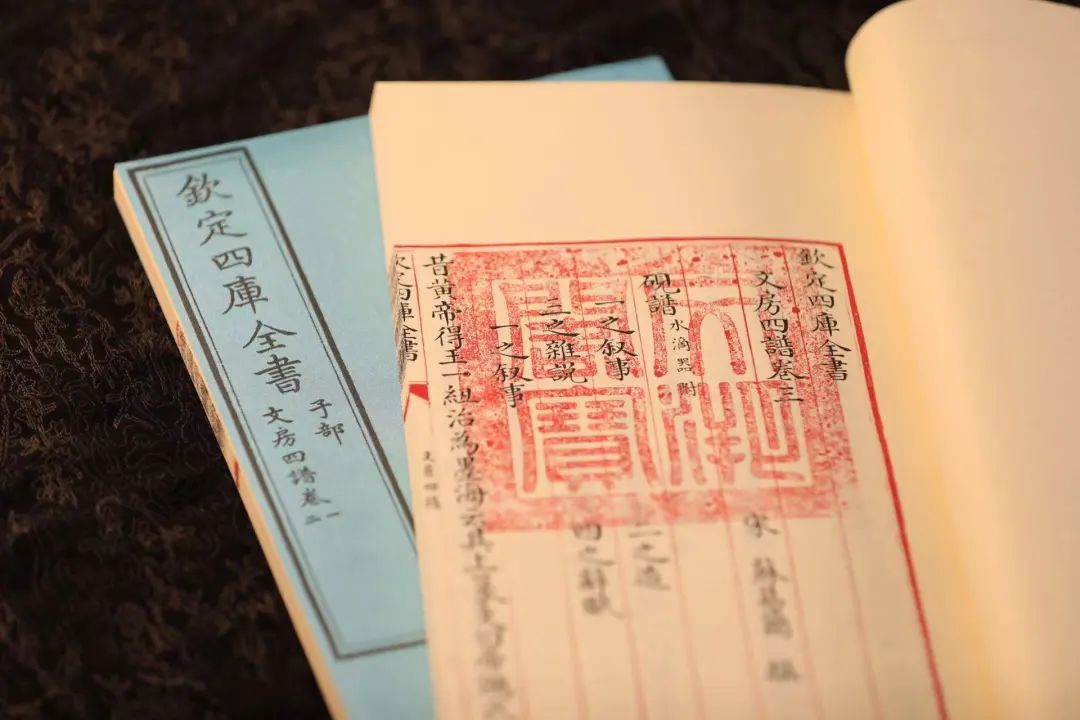 欽定四庫全書
子部
文房四譜卷一二
欽定四庫全書
文房四譜卷三
宋 蘇易簡 撰
硯譜 水滴器附
一之叙事 二之造
三之雜說 四之辭賦
一之叙事
昔黃帝得玉一紐治為墨海云其上篆文曰帝鴻氏
欽定四庫全書
文房四譜
文淵閣寶